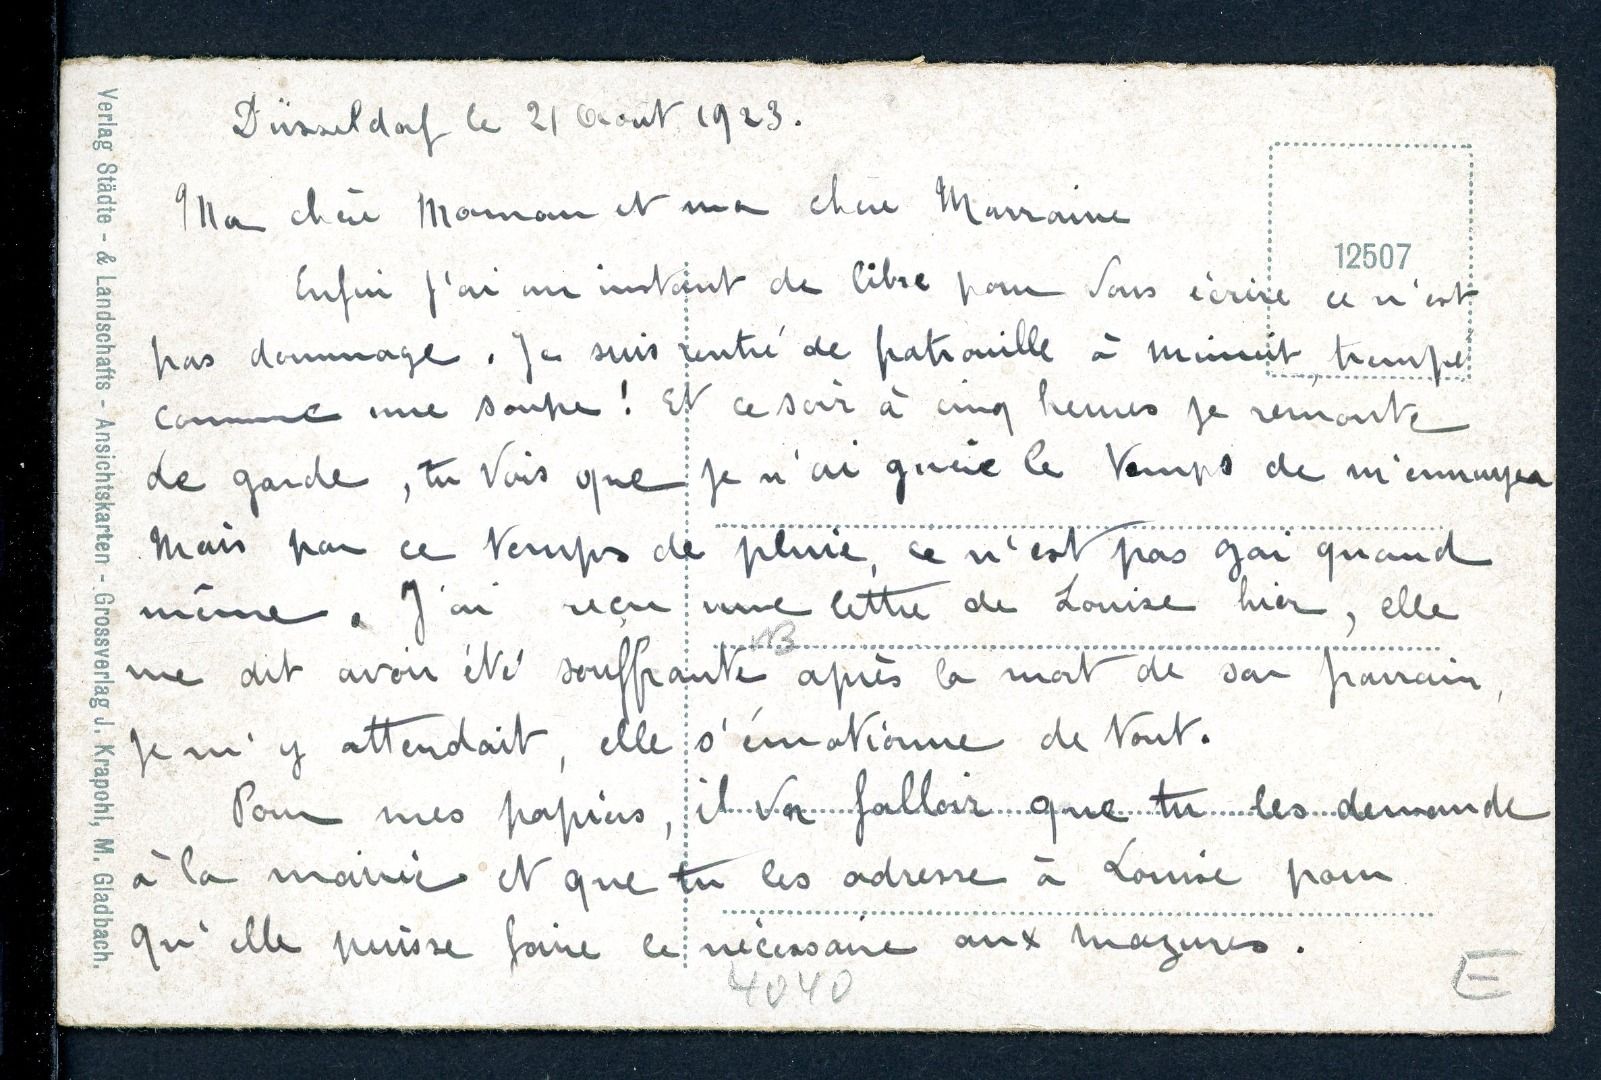 Düsseldorf le 21 Août 1923.
Ma chère Maman et ma chère Marraine
12507
Enfin j'ai un instant de libre pour vous écrire ce n'est
pas dommage. Je suis rentré de patrouille à minuit, trempé
comme une soupe! Et ce soir à cinq heures je remonte
de garde, tu vois que je n'ai guère le temps de m'ennuyer
Mais par ce temps de pluie, ce n'est pas gai quand
même. J'ai reçu une lettre de Louise hier, elle
me dit avoir été souffrante après la mort de son parrain,
je m'y attendait, elle s'émotionne de tout.
Pour mes papiers, il va falloir que tu les demande
à la mairie et que tu les adresse à Louise pour
qu'elle puisse faire le nécessaire aux Mazures.
4040
E
Verlag Städte- & Landschafts-Ansichtskarten - Grossverlag J. Krapohl, M. Gladbach.